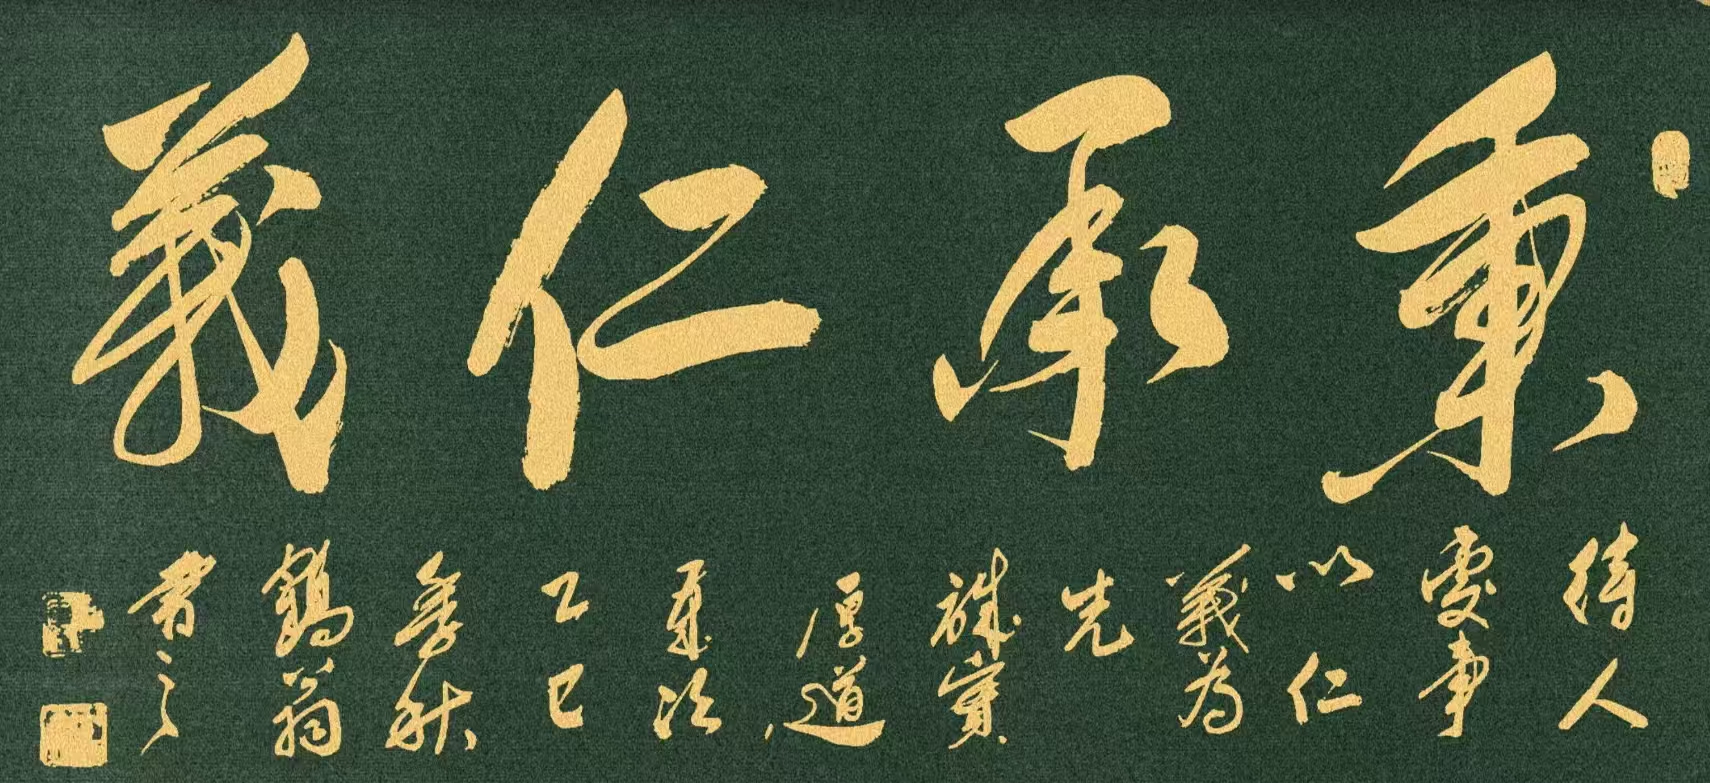 秉承仁義
待人
處事
以仁
義為
先
誠實
厚道
歲次
乙巳
季秋
鶴翁
書之